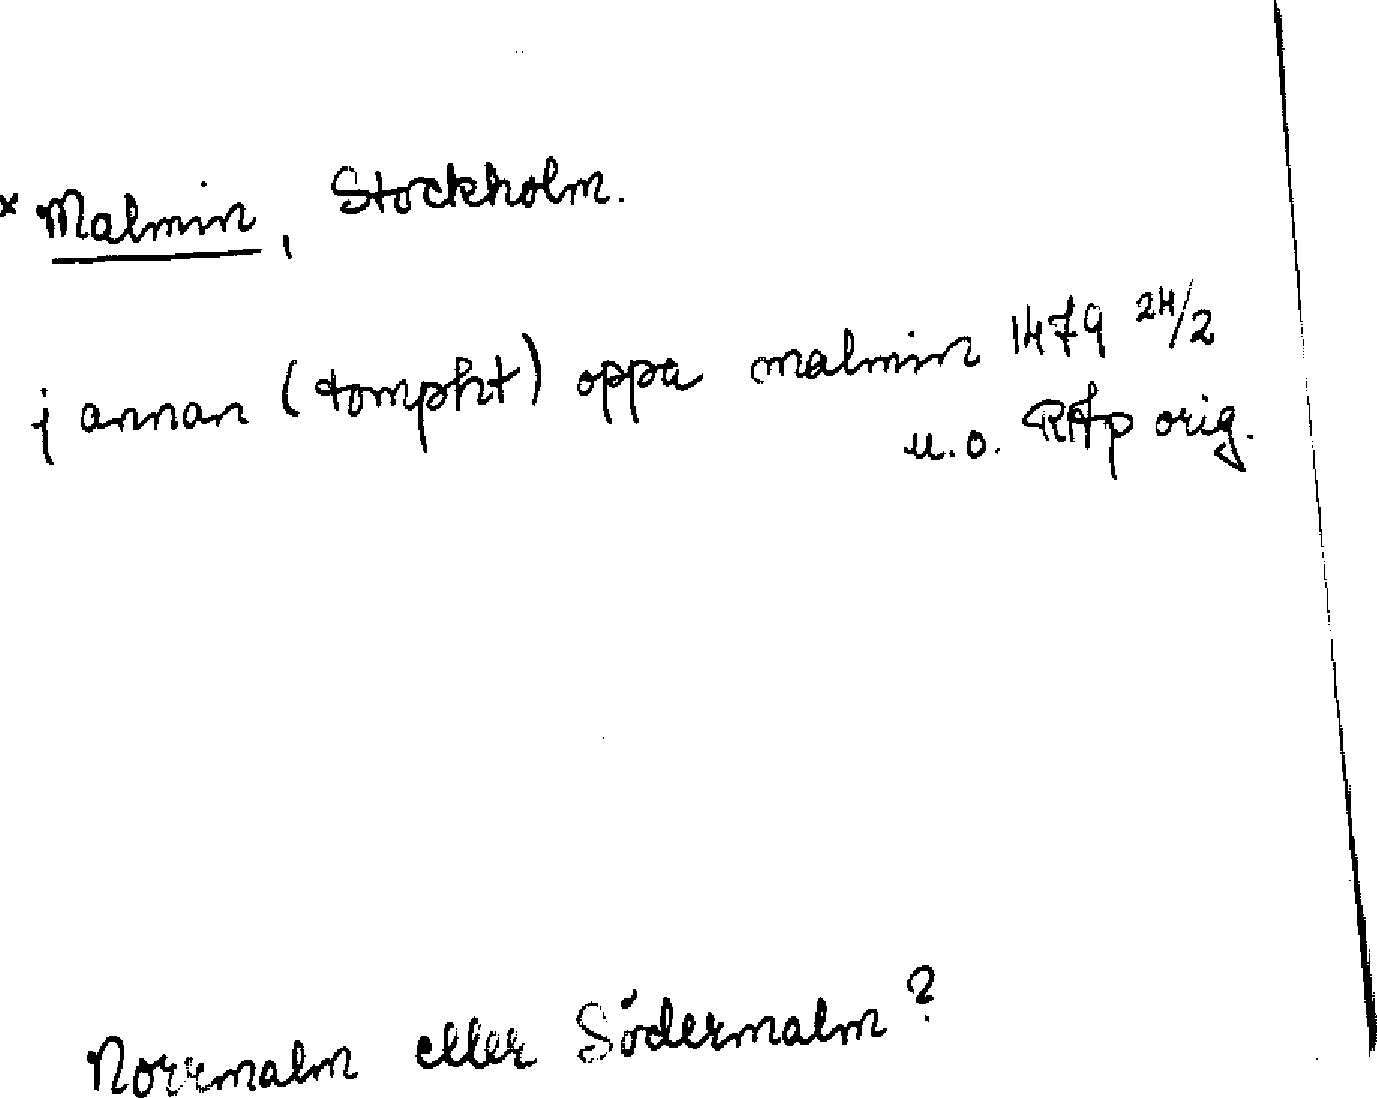 × Malmin, Stockholm.
j annan (tompht) oppa malmin 1479 24/2
u.o. RAp orig.
Norrmalm eller Södermalm?